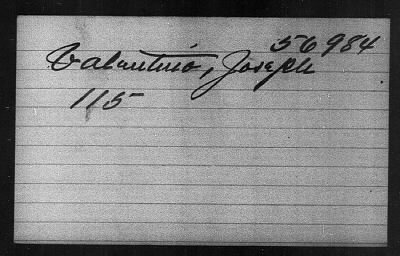 56984
Valentino, Joseph
115